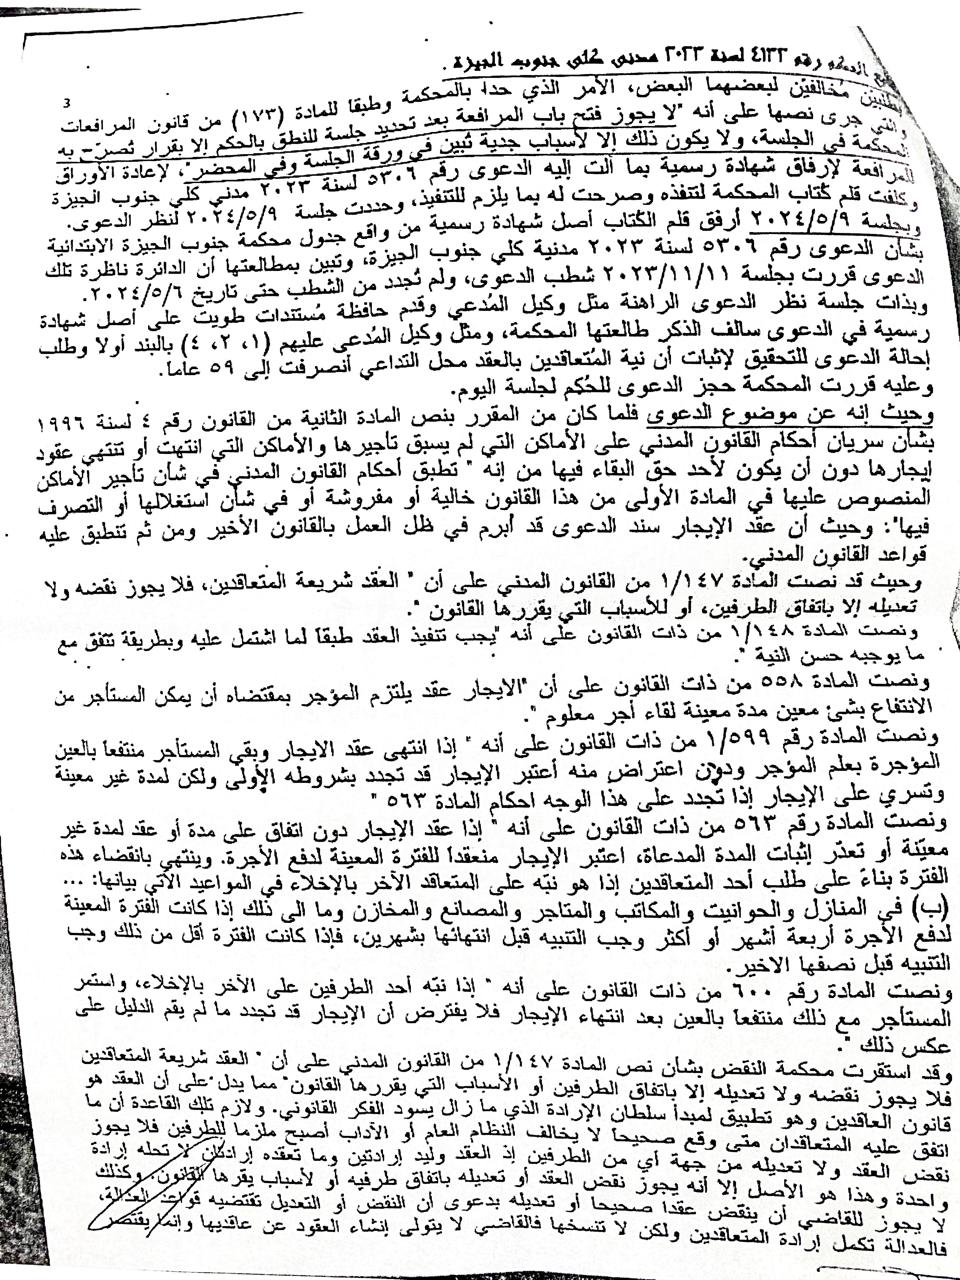 تابع الحكم رقم ٤١٣٢ لسنة ٢٠٢٣ مدنى كلى جنوب الجيزة .
3
مُخالفيّن لبعضهما البعض، الأمر الذي حدا بالمحكمة وطبقا للمادة (١٧٣) من قانون المرافعات
والتي جرى نصها على أنه "لا يجوز فتح باب المرافعة بعد تحديد جلسة للنطق بالحكم إلا بقرار تُصرّح به
المحكمة في الجلسة، ولا يكون ذلك إلا لأسباب جدية تُبين في ورقة الجلسة وفي المحضر"، لإعادة الأوراق
للمرافعة لإرفاق شهادة رسمية بما آلت إليه الدعوى رقم ٥٣٠٦ لسنة ٢٠٢٣ مدني كلي جنوب الجيزة
وكلفت قلم كُتاب المحكمة لتنفذه وصرحت له بما يلزم للتنفيذ، وحددت جلسة ٢٠٢٤/٥/٩ لنظر الدعوى.
وبجلسة ٢٠٢٤/٥/٩ أرفق قلم الكُتاب أصل شهادة رسمية من واقع جدول محكمة جنوب الجيزة الابتدائية
بشأن الدعوى رقم ٥٣٠٦ لسنة ٢٠٢٣ مدنية كلي جنوب الجيزة، وتبين بمطالعتها أن الدائرة ناظرة تلك
الدعوى قررت بجلسة ٢٠٢٣/١١/١١ شطب الدعوى، ولم تُجدد من الشطب حتى تاريخ ٢٠٢٤/٥/٦.
وبذات جلسة نظر الدعوى الراهنة مثل وكيل المُدعي وقدم حافظة مُستندات طويت على أصل شهادة
رسمية في الدعوى سالف الذكر طالعتها المحكمة، ومثل وكيل المُدعى عليهم (١، ٢، ٤) بالبند أولا وطلب
إحالة الدعوى للتحقيق لإثبات أن نية المُتعاقدين بالعقد محل التداعي أنصرفت إلى ٥٩ عاماً.
وعليه قررت المحكمة حجز الدعوى للحُكم لجلسة اليوم.
وحيث إنه عن موضوع الدعوى فلما كان من المقرر بنص المادة الثانية من القانون رقم ٤ لسنة ١٩٩٦
بشأن سريان أحكام القانون المدني على الأماكن التي لم يسبق تأجيرها والأماكن التي انتهت أو تنتهي عقود
إيجارها دون أن يكون لأحد حق البقاء فيها من إنه " تطبق أحكام القانون المدني في شأن تأجير الأماكن
المنصوص عليها في المادة الأولى من هذا القانون خالية أو مفروشة أو في شأن استغلالها أو التصرف
فيها": وحيث أن عقد الإيجار سند الدعوى قد أبرم في ظل العمل بالقانون الأخير ومن ثم تنطبق عليه
قواعد القانون المدني.
وحيث قد نصت المادة ١/١٤٧ من القانون المدني على أن " العقد شريعة المتعاقدين، فلا يجوز نقضه ولا
تعديله إلا باتفاق الطرفين، أو للأسباب التي يقررها القانون ".
ونصت المادة ١/١٤٨ من ذات القانون على أنه "يجب تنفيذ العقد طبقاً لما اشتمل عليه وبطريقة تتفق مع
ما يوجبه حسن النية ".
ونصت المادة ٥٥٨ من ذات القانون على أن "الايجار عقد يلتزم المؤجر بمقتضاه أن يمكن المستأجر من
الانتفاع بشئ معين مدة معينة لقاء أجر معلوم ".
ونصت المادة رقم ١/٥٩٩ من ذات القانون على أنه " إذا انتهى عقد الايجار وبقي المستأجر منتفعاً بالعين
المؤجرة بعلم المؤجر ودون اعتراض منه أعتبر الإيجار قد تجدد بشروطه الأولى ولكن لمدة غير معينة
وتسري على الإيجار إذا تجدد على هذا الوجه احكام المادة ٥٦٣ "
ونصت المادة رقم ٥٦٣ من ذات القانون على أنه " إذا عقد الإيجار دون اتفاق على مدة أو عقد لمدة غير
معيّنة أو تعذّر إثبات المدة المدعاة، اعتبر الإيجار منعقداً للفترة المعينة لدفع الأجرة. وينتهي بانقضاء هذه
الفترة بناءً على طلب أحد المتعاقدين إذا هو نبّه على المتعاقد الآخر بالإخلاء في المواعيد الآتي بيانها: ...
(ب) في المنازل والحوانيت والمكاتب والمتاجر والمصانع والمخازن وما الى ذلك إذا كانت الفترة المعينة
لدفع الأجرة أربعة أشهر أو أكثر وجب التنبيه قبل انتهائها بشهرين، فإذا كانت الفترة أقل من ذلك وجب
التنبيه قبل نصفها الاخير.
ونصت المادة رقم ٦٠٠ من ذات القانون على أنه " إذا نبّه أحد الطرفين على الآخر بالإخلاء، واستمر
المستأجر مع ذلك منتفعاً بالعين بعد انتهاء الإيجار فلا يفترض أن الإيجار قد تجدد ما لم يقم الدليل على
عكس ذلك ".
وقد استقرت محكمة النقض بشأن نص المادة ١/١٤٧ من القانون المدني على أن " العقد شريعة المتعاقدين
فلا يجوز نقضه ولا تعديله إلا باتفاق الطرفين أو الأسباب التي يقررها القانون" مما يدل على أن العقد هو
قانون العاقدين وهو تطبيق لمبدأ سلطان الإرادة الذي ما زال يسود الفكر القانوني. ولازم تلك القاعدة أن ما
اتفق عليه المتعاقدان متى وقع صحيحاً لا يخالف النظام العام أو الآداب أصبح ملزما للطرفين فلا يجوز
نقض العقد ولا تعديله من جهة أي من الطرفين إذ العقد وليد إرادتين وما تعقده إرادتان لا تحله إرادة
واحدة وهذا هو الأصل إلا أنه يجوز نقض العقد أو تعديله باتفاق طرفيه أو لأسباب يقرها القانون. وكذلك
لا يجوز للقاضي أن ينقض عقدا صحيحا أو تعديله بدعوى أن النقض أو التعديل تقتضيه قواعد العدالة،
فالعدالة تكمل إرادة المتعاقدين ولكن لا تنسخها فالقاضي لا يتولى إنشاء العقود عن عاقديها وإنما يقتصر